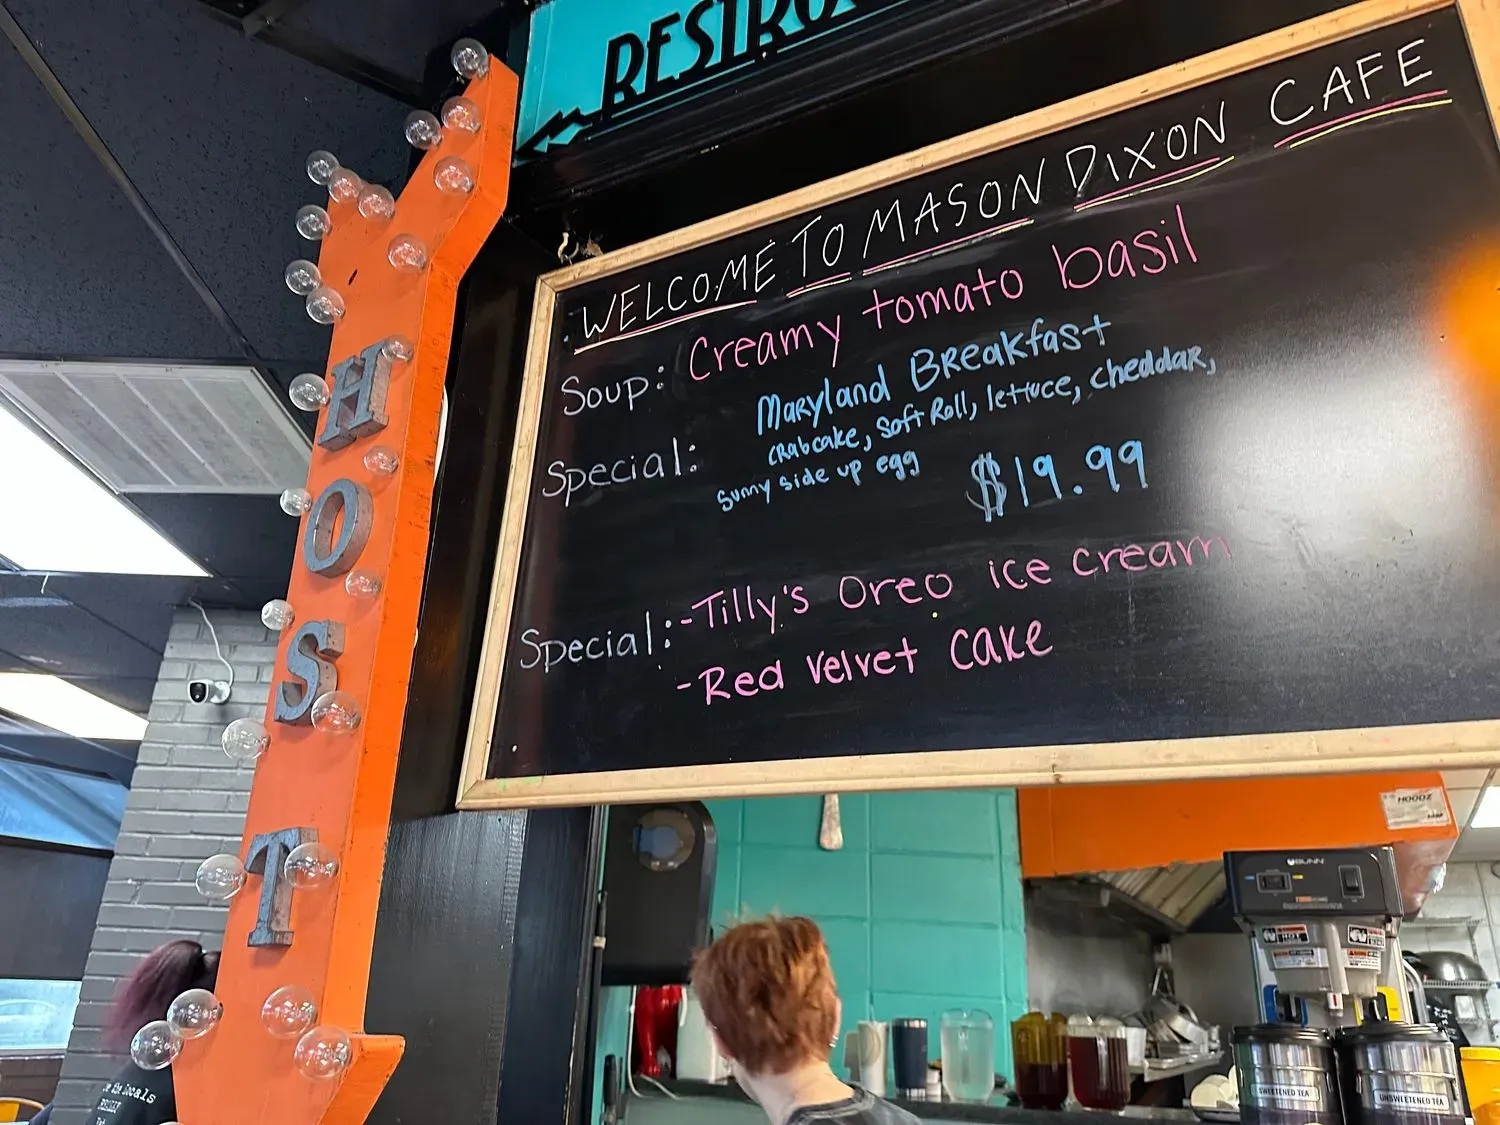 RESTRO
WELCOME TO MASON DIXON CAFE
Soup: Creamy tomato basil
Special: Maryland Breakfast
crabcake, Soft Roll, lettuce, cheddar,
Sunny side up egg
$19.99
Special: -Tilly's Oreo ice cream
-Red velvet cake
HOST
HOODZ
BUNN
HOT
SWEETENED TEA
UNSWEETENED TEA
the locals